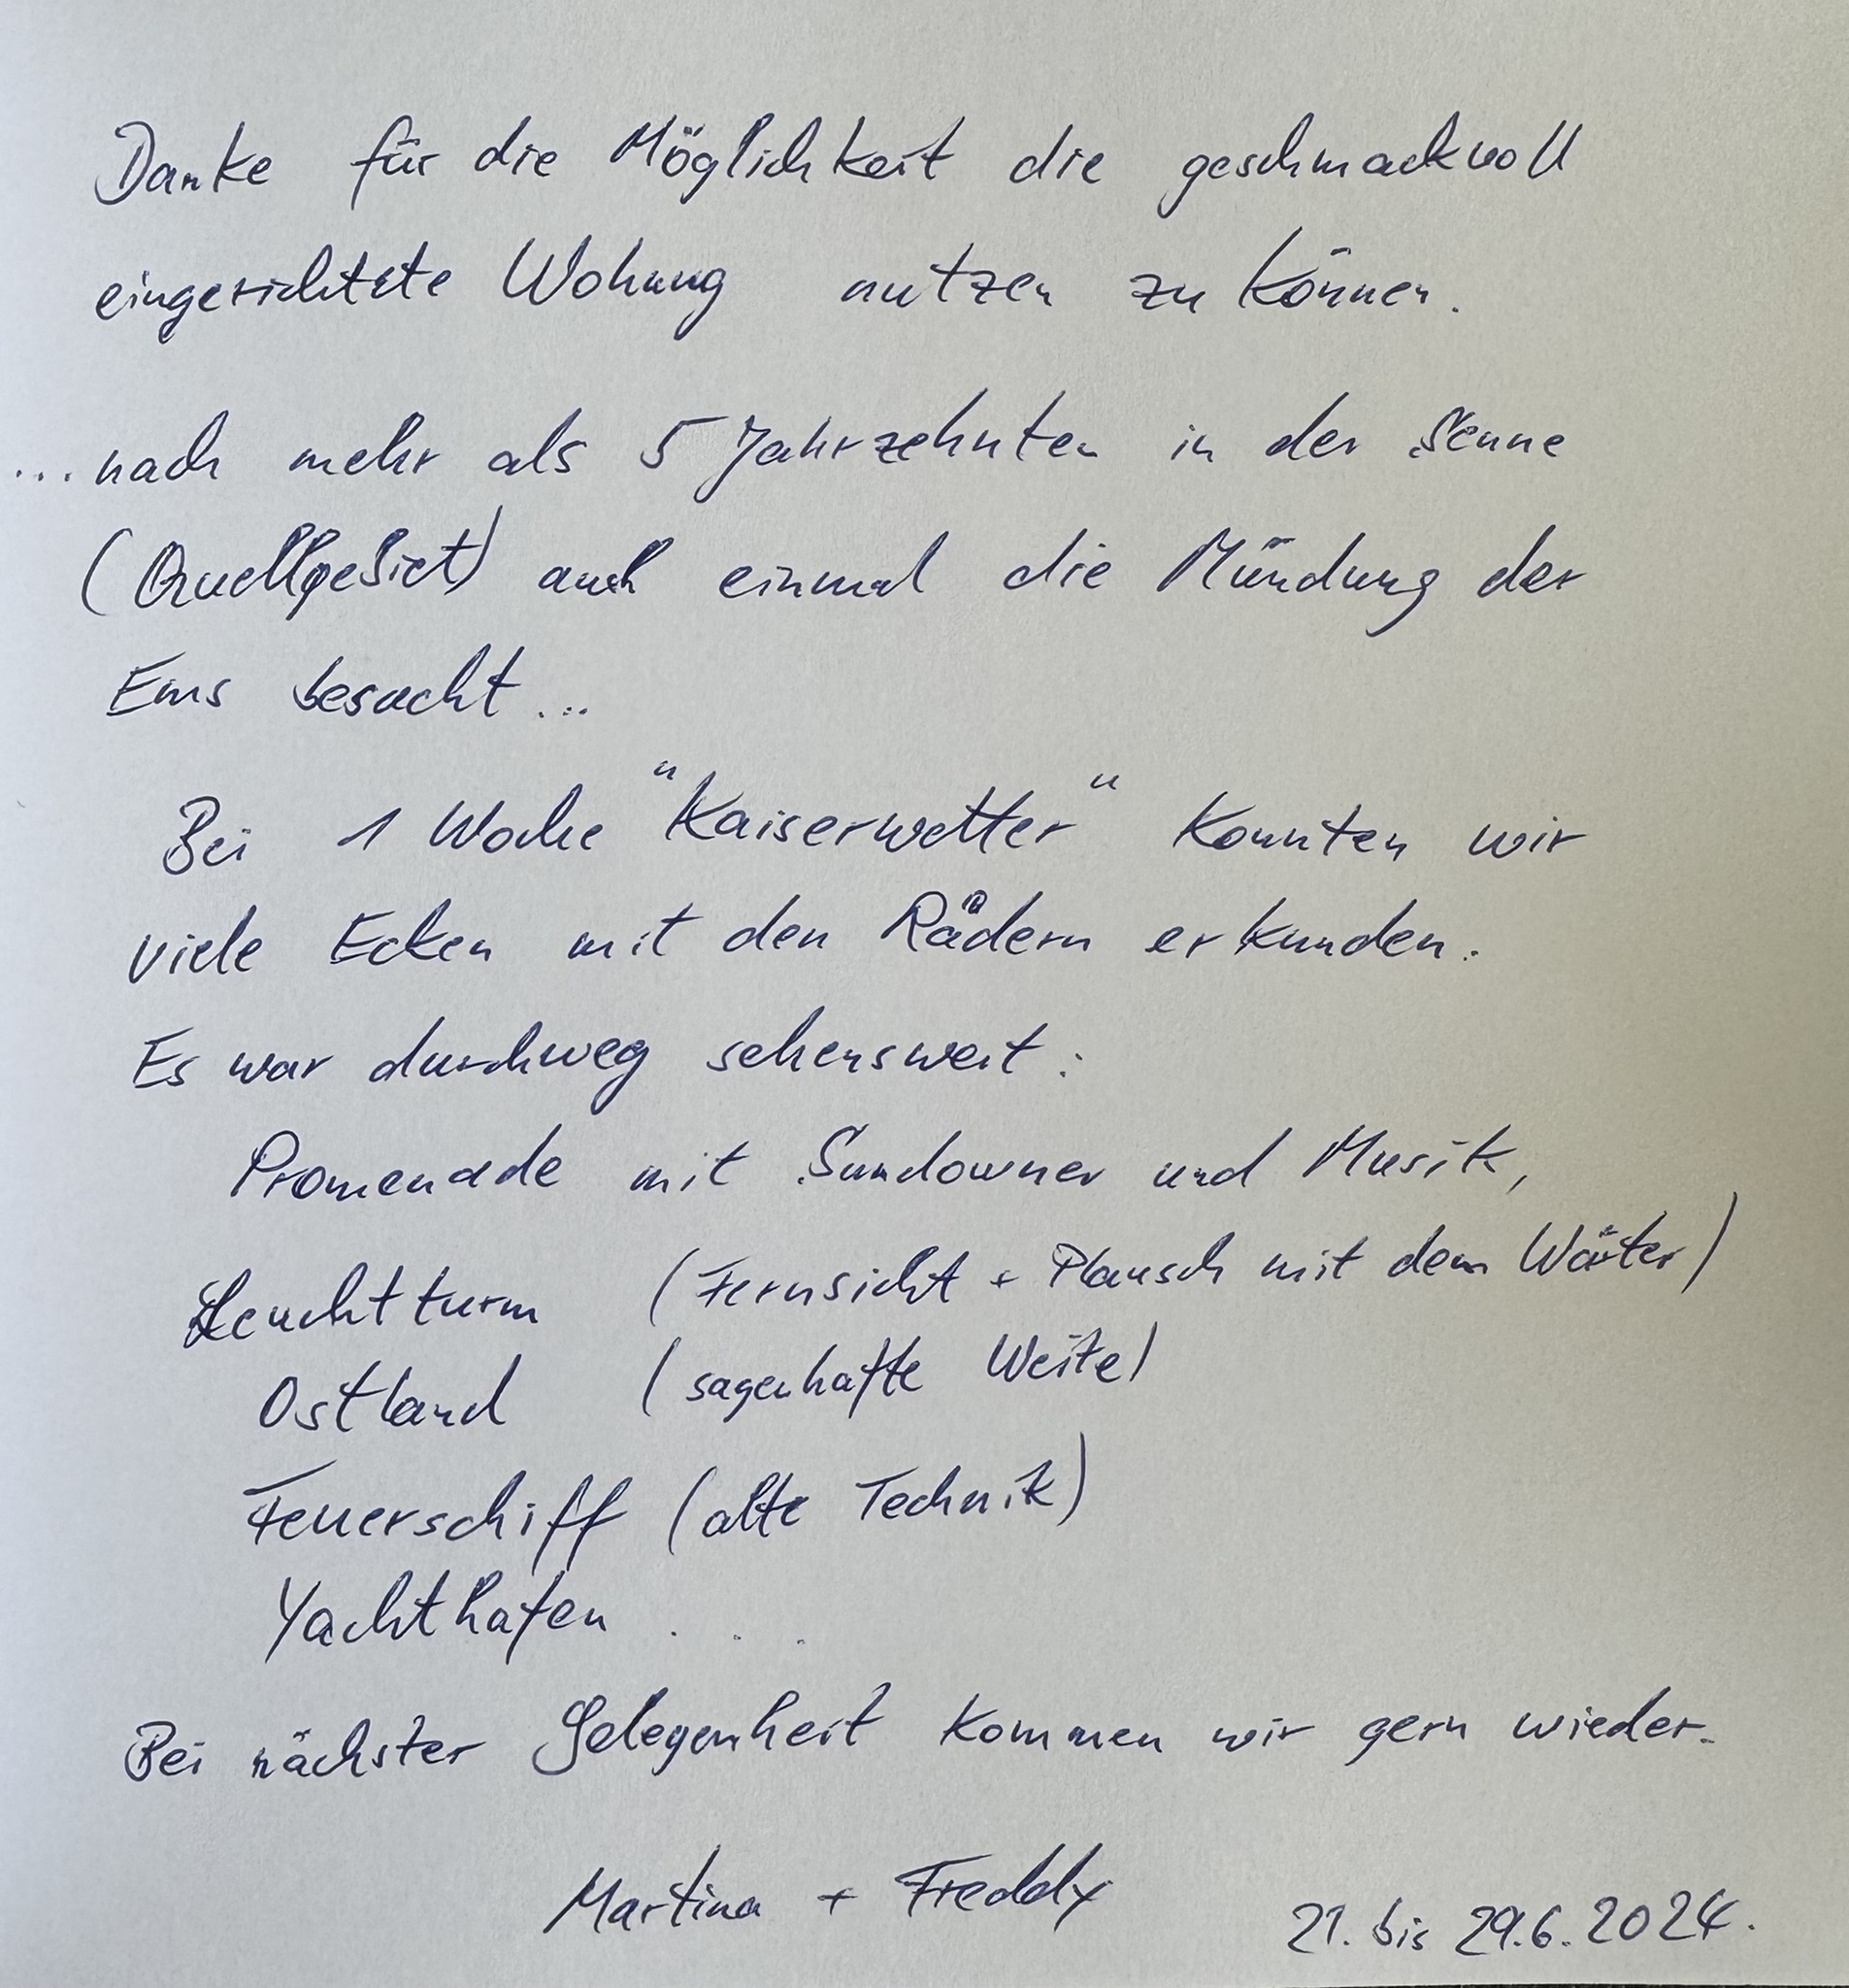 Danke für die Möglichkeit die geschmackvoll
eingerichtete Wohnung nutzen zu können.
... nach mehr als 5 Jahrzehnten in der Senne
(Quellgebiet) auch einmal die Mündung der
Ems besucht...
Bei 1 Woche "Kaiserwetter" konnten wir
viele Ecken mit den Rädern erkunden.
Es war durchweg sehenswert:
Promenade mit Sundowner und Musik,
Leuchtturm (Fernsicht + Plausch mit dem Wärter)
Ostland (sagenhafte Weite)
Feuerschiff (alte Technik)
Yachthafen . . .
Bei nächster Gelegenheit kommen wir gern wieder.
Martina + Freddy 21. bis 29.6.2024.